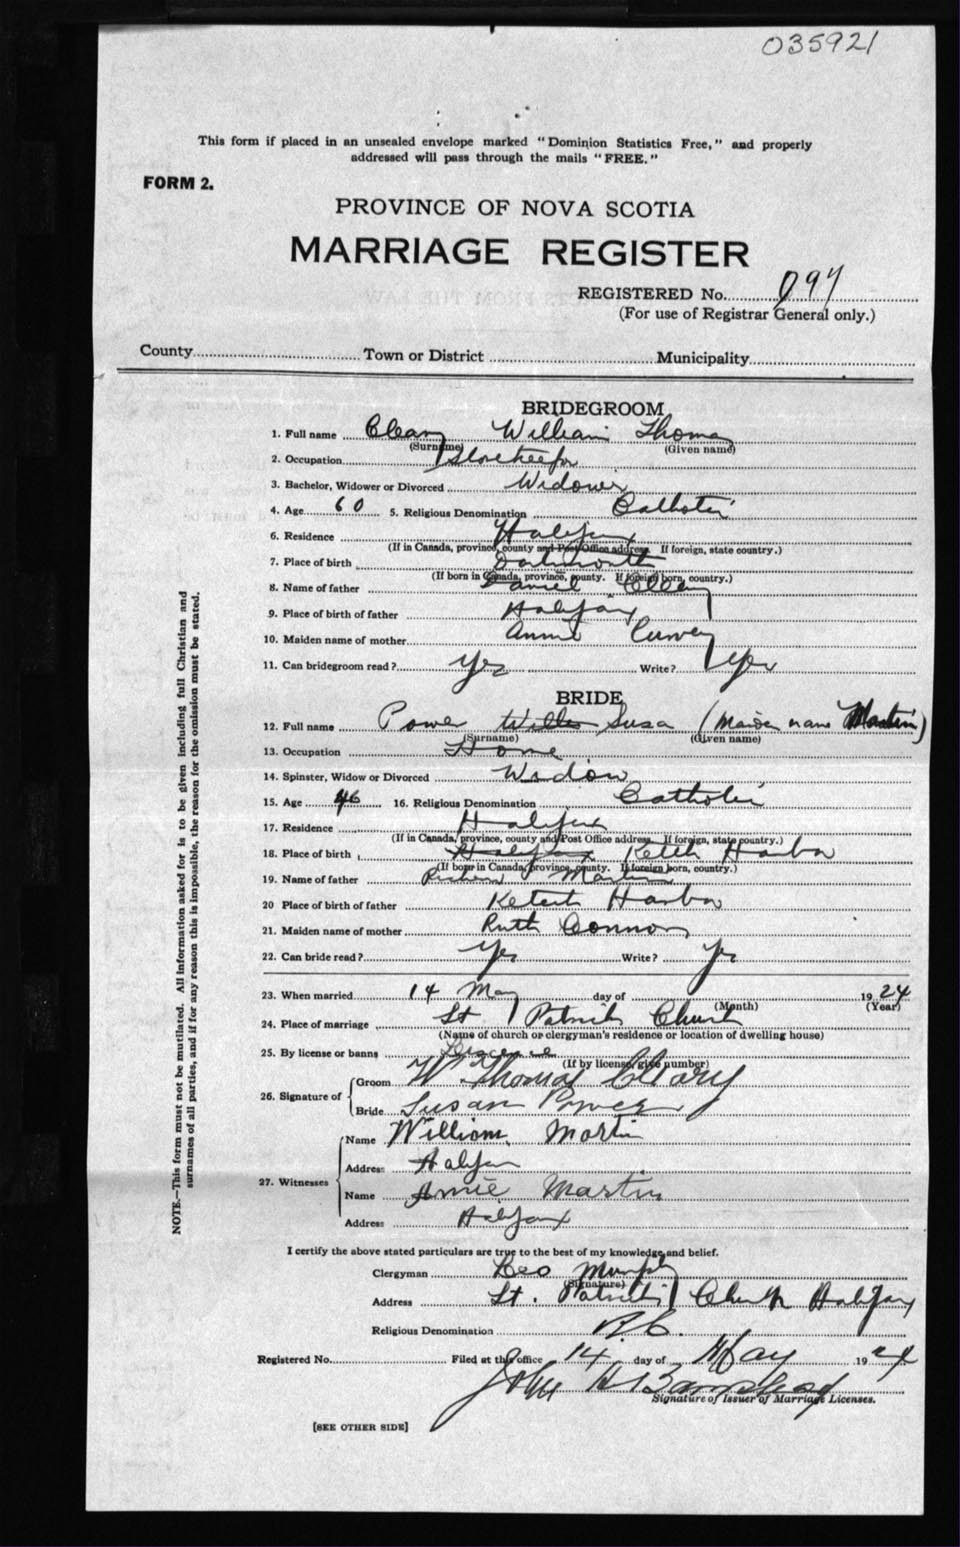 035921
This form if placed in an unsealed envelope marked "Dominion Statistics Free," and properly
addressed will pass through the mails "FREE."
FORM 2.
PROVINCE OF NOVA SCOTIA
MARRIAGE REGISTER
REGISTERED No. 097
(For use of Registrar General only.)
County Town or District Municipality
BRIDEGROOM
1. Full name Cleary William Thomas
(Surname) (Given name)
2. Occupation Storekeeper
3. Bachelor, Widower or Divorced Widower
4. Age 60 5. Religious Denomination Catholic
6. Residence Halifax
(If in Canada, province, county and Post Office address. If foreign, state country.)
7. Place of birth Dartmouth
(If born in Canada, province, county. If foreign born, country.)
8. Name of father Daniel Cleary
9. Place of birth of father Halifax
10. Maiden name of mother Annie
11. Can bridegroom read? Yes Write? Yes
BRIDE
12. Full name Power Susa (Maiden name Martin)
(Surname) (Given name)
13. Occupation Home
14. Spinster, Widow or Divorced Widow
15. Age 46 16. Religious Denomination Catholic
17. Residence Halifax
(If in Canada, province, county and Post Office address. If foreign, state country.)
18. Place of birth Halifax Ketch Harbor
(If born in Canada, province, county. If foreign born, country.)
19. Name of father Martin
20 Place of birth of father Ketch Harbor
21. Maiden name of mother Ruth Connors
22. Can bride read? Yes Write? Yes
23. When married 14 May day of 1924
(Month) (Year)
24. Place of marriage St Patricks Church
(Name of church or clergyman's residence or location of dwelling house)
25. By license or banns License
(If by license, give number)
26. Signature of Groom W Thomas Cleary
Bride Susan Power
27. Witnesses Name William Martin
Address Halifax
Name Annie Martin
Address Halifax
I certify the above stated particulars are true to the best of my knowledge and belief.
Clergyman Leo Murphy
(Signature)
Address St. Patricks Church Halifax
Religious Denomination R.C.
Registered No. Filed at this office 14 day of May 1924
John H Barnstead
Signature of Issuer of Marriage Licenses.
[SEE OTHER SIDE]
NOTE.—This form must not be mutilated. All information asked for is to be given including full Christian and
surnames of all parties, and if for any reason this is impossible, the reason for the omission must be stated.